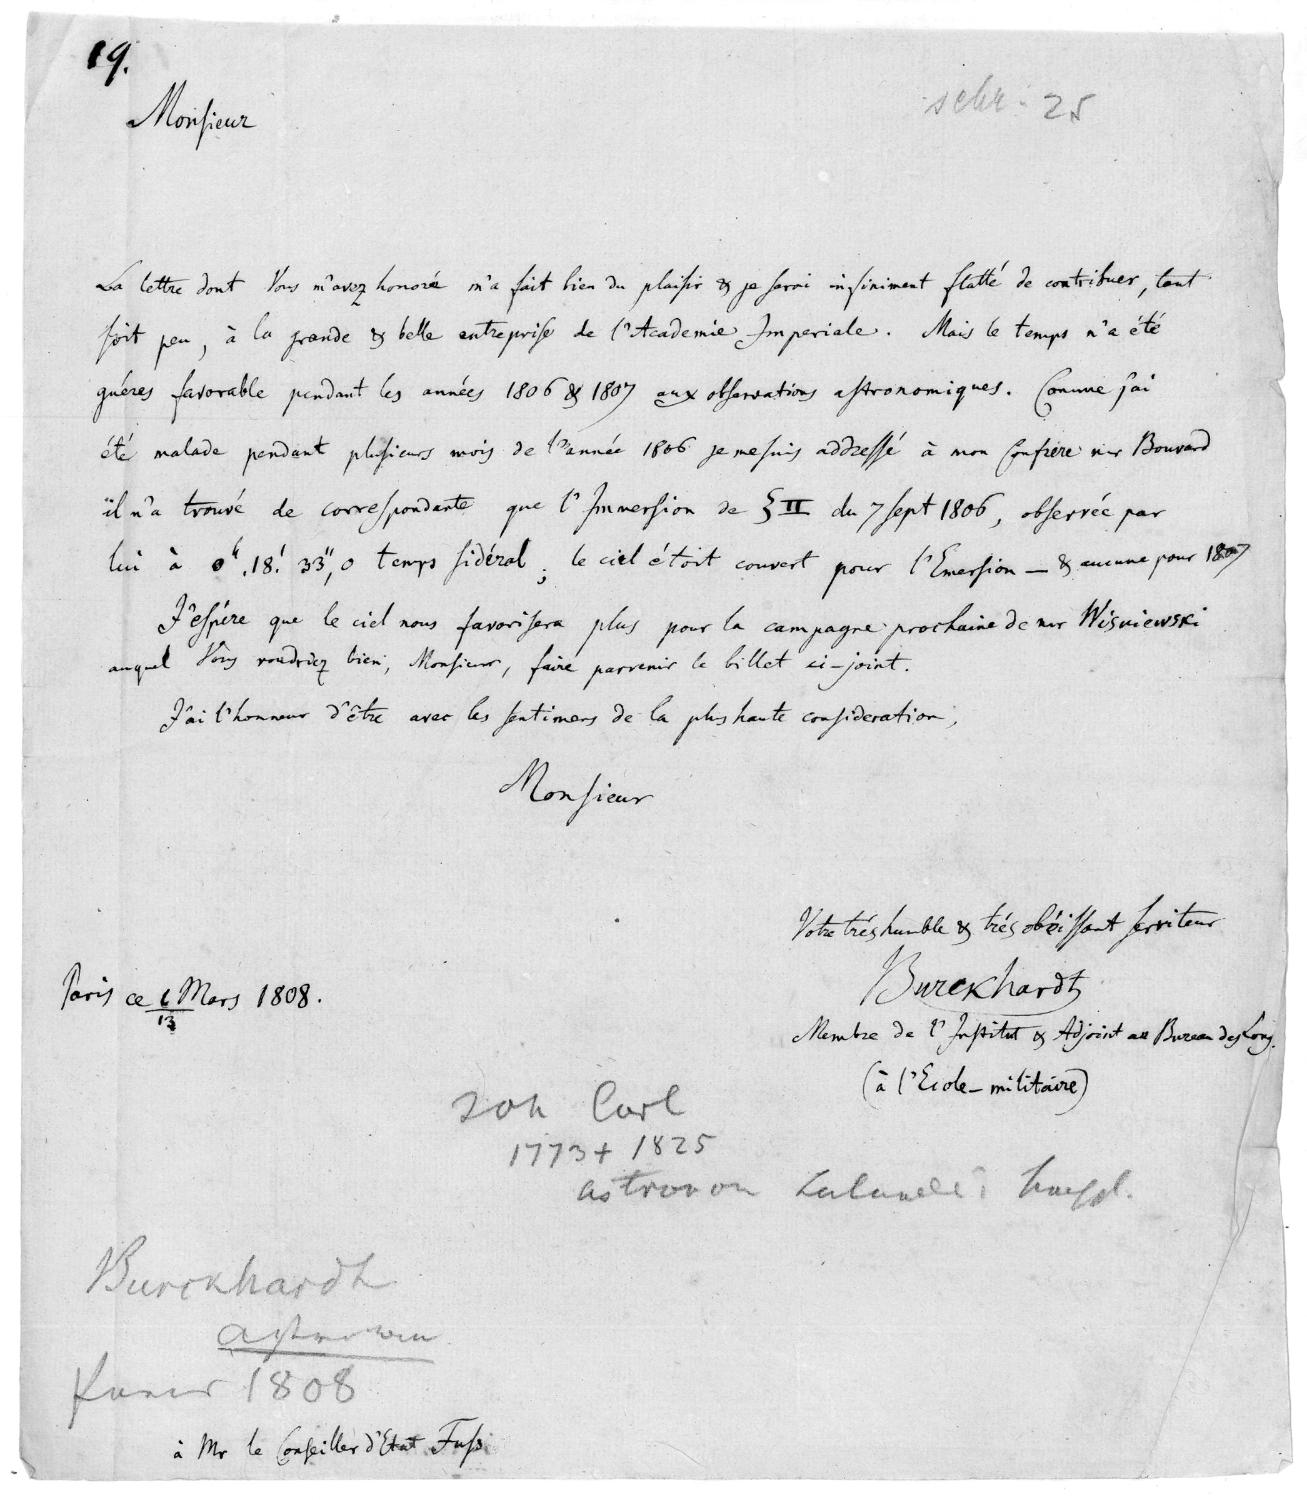 19.
Monsieur
schr. 25
La lettre dont Vous m'avez honoré m'a fait bien du plaisir & je serai infiniment flatté de contribuer, tant
soit peu, à la grande & belle entreprise de l'Academie Imperiale. Mais le temps n'a été
guéres favorable pendant les années 1806 & 1807 aux observations astronomiques. Comme j'ai
été malade pendant plusieurs mois de l'année 1806 je me suis addressé à mon Confrere mr Bouvard
il n'a trouvé de correspondante que l'Immersion de ξ II du 7 sept 1806, observée par
lui à 0h. 18.' 33",0 temps sidéral; le ciel étoit couvert pour l'Emersion — & aucune pour 1807
J'espére que le ciel nous favorisera plus pour la campagne prochaine de mr Wisniewski
auquel Vous voudriez bien, Monsieur, faire parvenir le billet ci-joint.
J'ai l'honneur d'être avec les sentimens de la plus haute consideration,
Monsieur
Votre trés humble & trés obéissant serviteur
Burckhardt
Paris ce 1/13 Mars 1808.
Membre de l'Institut & Adjoint au Bureau des Long.
(à l'Ecole-militaire)
Joh Carl
1773 + 1825
astronom
Burckhardt
astronom
1808
à Mr le Conseiller d'Etat Fuss